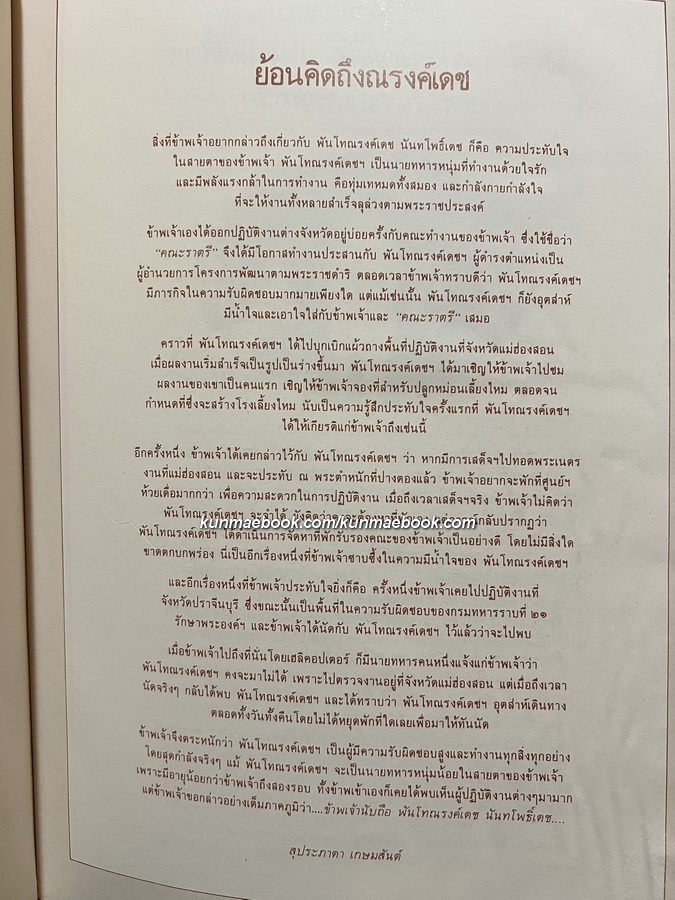 ย้อนคิดถึงณรงค์เดช
สิ่งที่ข้าพเจ้าอยากกล่าวถึงเกี่ยวกับ พันโทณรงค์เดช นันทโพธิ์เดช ก็คือ ความประทับใจ
ในสายตาของข้าพเจ้า พันโทณรงค์เดชฯ เป็นนายทหารหนุ่มที่ทำงานด้วยใจรัก
และมีพลังแรงกล้าในการทำงาน คือทุ่มเทหมดทั้งสมอง และกำลังกายกำลังใจ
ที่จะให้งานทั้งหลายสำเร็จลุล่วงตามพระราชประสงค์
ข้าพเจ้าเองได้ออกปฏิบัติงานต่างจังหวัดอยู่บ่อยครั้งกับคณะทำงานของข้าพเจ้า ซึ่งใช้ชื่อว่า
“คณะราตรี” จึงได้มีโอกาสทำงานประสานกับ พันโทณรงค์เดชฯ ผู้ดำรงตำแหน่งเป็น
ผู้อำนวยการโครงการพัฒนาตามพระราชดำริ ตลอดเวลาข้าพเจ้าทราบดีว่า พันโทณรงค์เดชฯ
มีภารกิจในความรับผิดชอบมากมายเพียงใด แต่แม้เช่นนั้น พันโทณรงค์เดชฯ ก็ยังอุตส่าห์
มีน้ำใจและเอาใจใส่กับข้าพเจ้าและ “คณะราตรี” เสมอ
คราวที่ พันโทณรงค์เดชฯ ได้ไปบุกเบิกแผ้วถางพื้นที่ปฏิบัติงานที่จังหวัดแม่ฮ่องสอน
เมื่อผลงานเริ่มสำเร็จเป็นรูปเป็นร่างขึ้นมา พันโทณรงค์เดชฯ ได้มาเชิญให้ข้าพเจ้าไปชม
ผลงานของเขาเป็นคนแรก เชิญให้ข้าพเจ้าจองที่สำหรับปลูกหม่อนเลี้ยงไหม ตลอดจน
กำหนดที่ซึ่งจะสร้างโรงเลี้ยงไหม นับเป็นความรู้สึกประทับใจครั้งแรกที่ พันโทณรงค์เดชฯ
ได้ให้เกียรติแก่ข้าพเจ้าถึงเช่นนี้
อีกครั้งหนึ่ง ข้าพเจ้าได้เคยกล่าวไว้กับ พันโทณรงค์เดชฯ ว่า หากมีการเสด็จฯไปทอดพระเนตร
งานที่แม่ฮ่องสอน และจะประทับ ณ พระตำหนักที่ปางตองแล้ว ข้าพเจ้าอยากจะพักที่ศูนย์ฯ
ห้วยเดื่อมากกว่า เพื่อความสะดวกในการปฏิบัติงาน เมื่อถึงเวลาเสด็จฯจริง ข้าพเจ้าไม่คิดว่า
พันโทณรงค์เดชฯ จะจำได้ กลับปรากฏว่า
kunmaebook.com/kunmaebook.com
พันโทณรงค์เดชฯ ได้ดำเนินการจัดหาที่พักรับรองคณะของข้าพเจ้าเป็นอย่างดี โดยไม่มีสิ่งใด
ขาดตกบกพร่อง นี่เป็นอีกเรื่องหนึ่งที่ข้าพเจ้าซาบซึ้งในความมีน้ำใจของ พันโทณรงค์เดชฯ
และอีกเรื่องหนึ่งที่ข้าพเจ้าประทับใจยิ่งก็คือ ครั้งหนึ่งข้าพเจ้าเคยไปปฏิบัติงานที่
จังหวัดปราจีนบุรี ซึ่งขณะนั้นเป็นพื้นที่ในความรับผิดชอบของกรมทหารราบที่ ๒๑
รักษาพระองค์ฯ และข้าพเจ้าได้นัดกับ พันโทณรงค์เดชฯ ไว้แล้วว่าจะไปพบ
เมื่อข้าพเจ้าไปถึงที่นั่นโดยเฮลิคอปเตอร์ ก็มีนายทหารคนหนึ่งแจ้งแก่ข้าพเจ้าว่า
พันโทณรงค์เดชฯ คงจะมาไม่ได้ เพราะไปตรวจงานอยู่ที่จังหวัดแม่ฮ่องสอน แต่เมื่อถึงเวลา
นัดจริงๆ กลับได้พบ พันโทณรงค์เดชฯ และได้ทราบว่า พันโทณรงค์เดชฯ อุตส่าห์เดินทาง
ตลอดทั้งวันทั้งคืนโดยไม่ได้หยุดพักที่ใดเลยเพื่อมาให้ทันนัด
ข้าพเจ้าจึงตระหนักว่า พันโทณรงค์เดชฯ เป็นผู้มีความรับผิดชอบสูงและทำงานทุกสิ่งทุกอย่าง
โดยสุดกำลังจริงๆ แม้ พันโทณรงค์เดชฯ จะเป็นนายทหารหนุ่มน้อยในสายตาของข้าพเจ้า
เพราะมีอายุน้อยกว่าข้าพเจ้าถึงสองรอบ ทั้งข้าพเจ้าเองก็เคยได้พบเห็นผู้ปฏิบัติงานต่างๆมามาก
แต่ข้าพเจ้าขอกล่าวอย่างเต็มภาคภูมิว่า....ข้าพเจ้านับถือ พันโทณรงค์เดช นันทโพธิ์เดช....
สุประภาดา เกษมสันต์